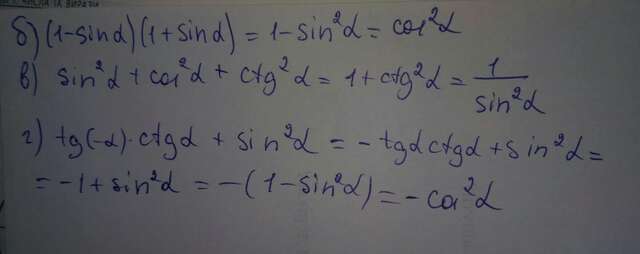 б) (1-sinα)(1+sinα) = 1-sin²α = cos²α
в) sin²α + cos²α + ctg²α = 1+ctg²α = 1/sin²α
г) tg(-α)·ctgα + sin²α = -tgαctgα + sin²α =
= -1 + sin²α = -(1-sin²α) = -cos²α